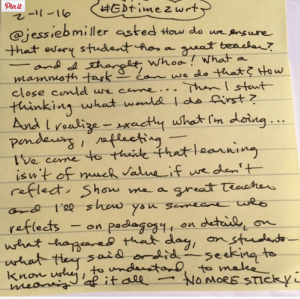 Pin it
2-11-16 #EDtime2wrt
@jessiebmiller asked How do we ensure
that every student has a great teacher?
— and I thought Whoa! What a
mammoth task — can we do that? How
close could we come... Then I start
thinking what would I do first?
And I realize — exactly what I'm doing...
pondering, reflecting —
I've come to think that learning
isn't of much value if we don't
reflect. Show me a great teacher
and I'll show you someone who
reflects — on pedagogy, on details, on
what happened that day, on students —
what they said or did — seeking to
know why, to understand, to make
meaning of it all — NO MORE STICKY